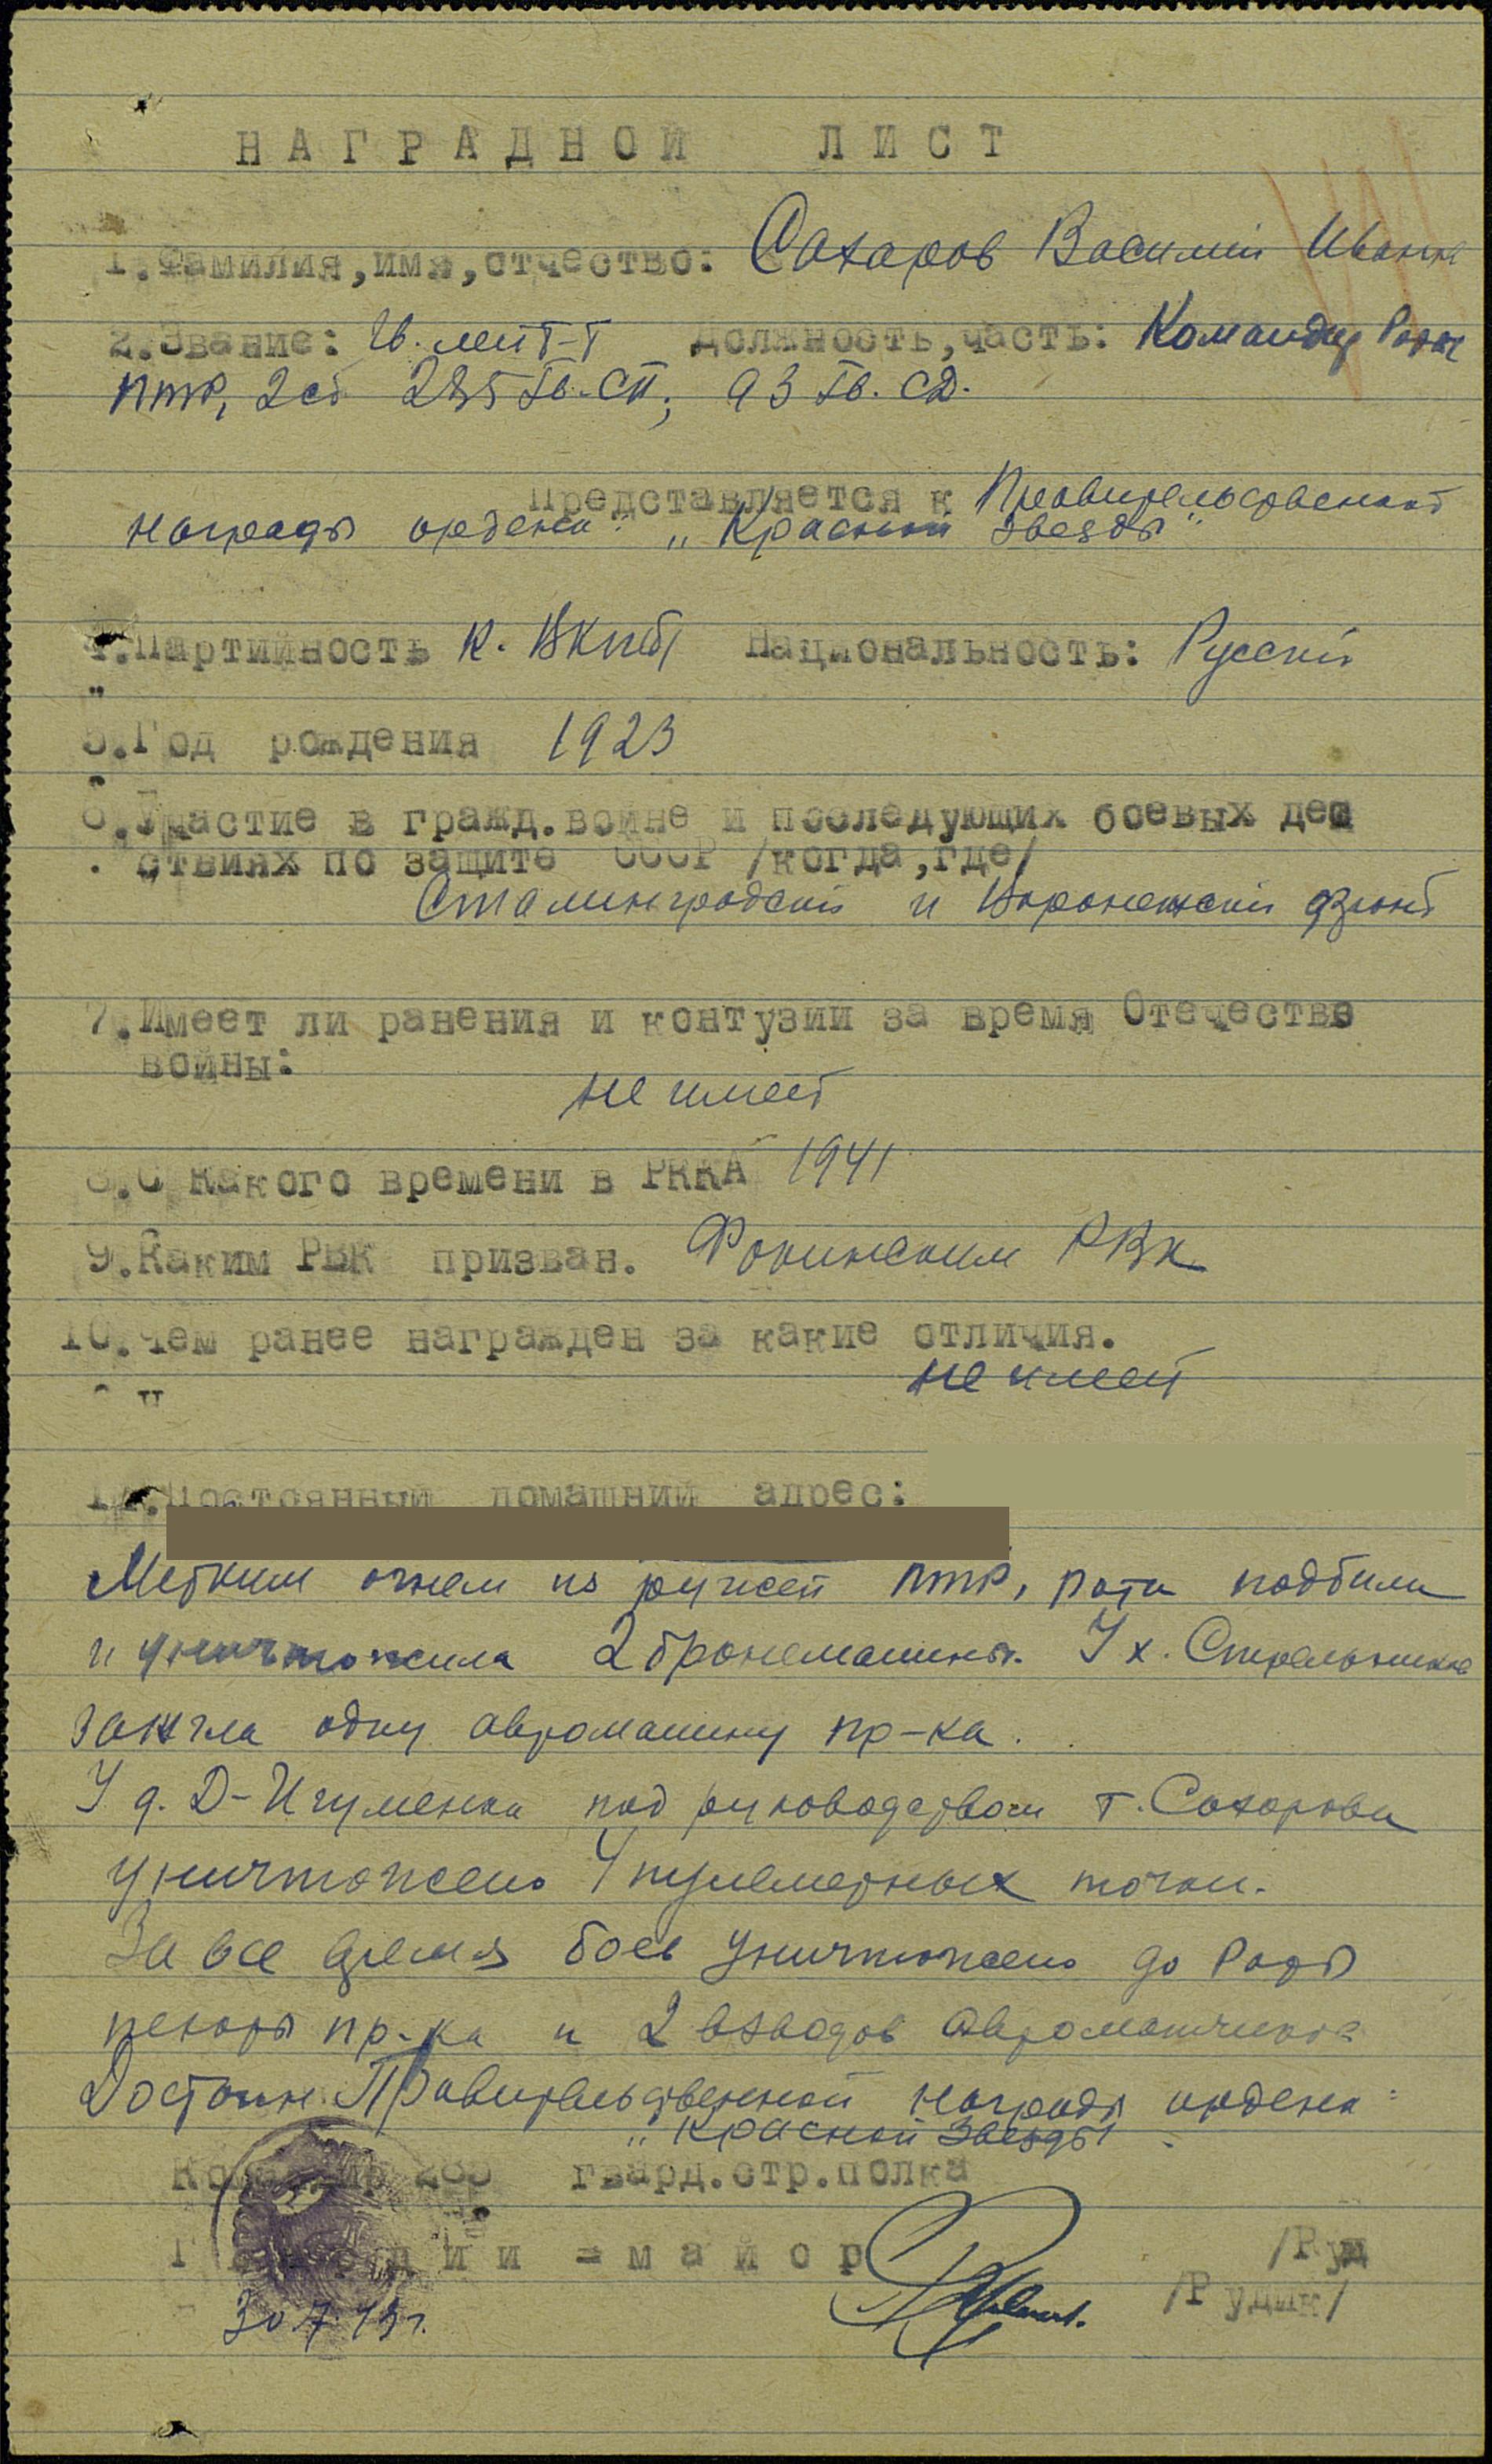 НАГРАДНОЙ ЛИСТ
1.Фамилия,имя,отчество: Сахаров Василий Иванов
2.Звание: Гв. лейт-т Должность,часть: Командир Роты
ПТР, 2сб 285 Гв. СП, 93 Гв. СД.
Представляется к Правительственной
награды ордена: „Красной Звезды"
4.Партийность К. ВКПб Национальность: Русский
5.Год рождения 1923
6.Участие в гражд.войне и последующих боевых дей
ствиях по защите СССР /когда,где/
Сталинградский и Воронежский фронт
7.Имеет ли ранения и контузии за время Отечестве
войны:
не имеет
8.С какого времени в РККА 1941
9.Каким РВК призван. Фокинским РВК
10.Чем ранее награжден за какие отличия.
не имеет
11.Постоянный домашний адрес:
Метким огнем из ружей ПТР, рота подбила
и уничтожила 2 бронемашины. У х. Стрельников
зажгла одну автомашину пр-ка.
У д. Д-Игуменка под руководством т. Сахарова
уничтожено 4 пулеметных точки.
За все время боев уничтожено до Роты
пехоты пр-ка и 2 взводов автоматчиков
Достоин Правительственной награды ордена:
„Красной Звезды"
Командир 285 гвард.стр.полка
Гвардии =майор /Руд
/Рудик/
30.7.43г.